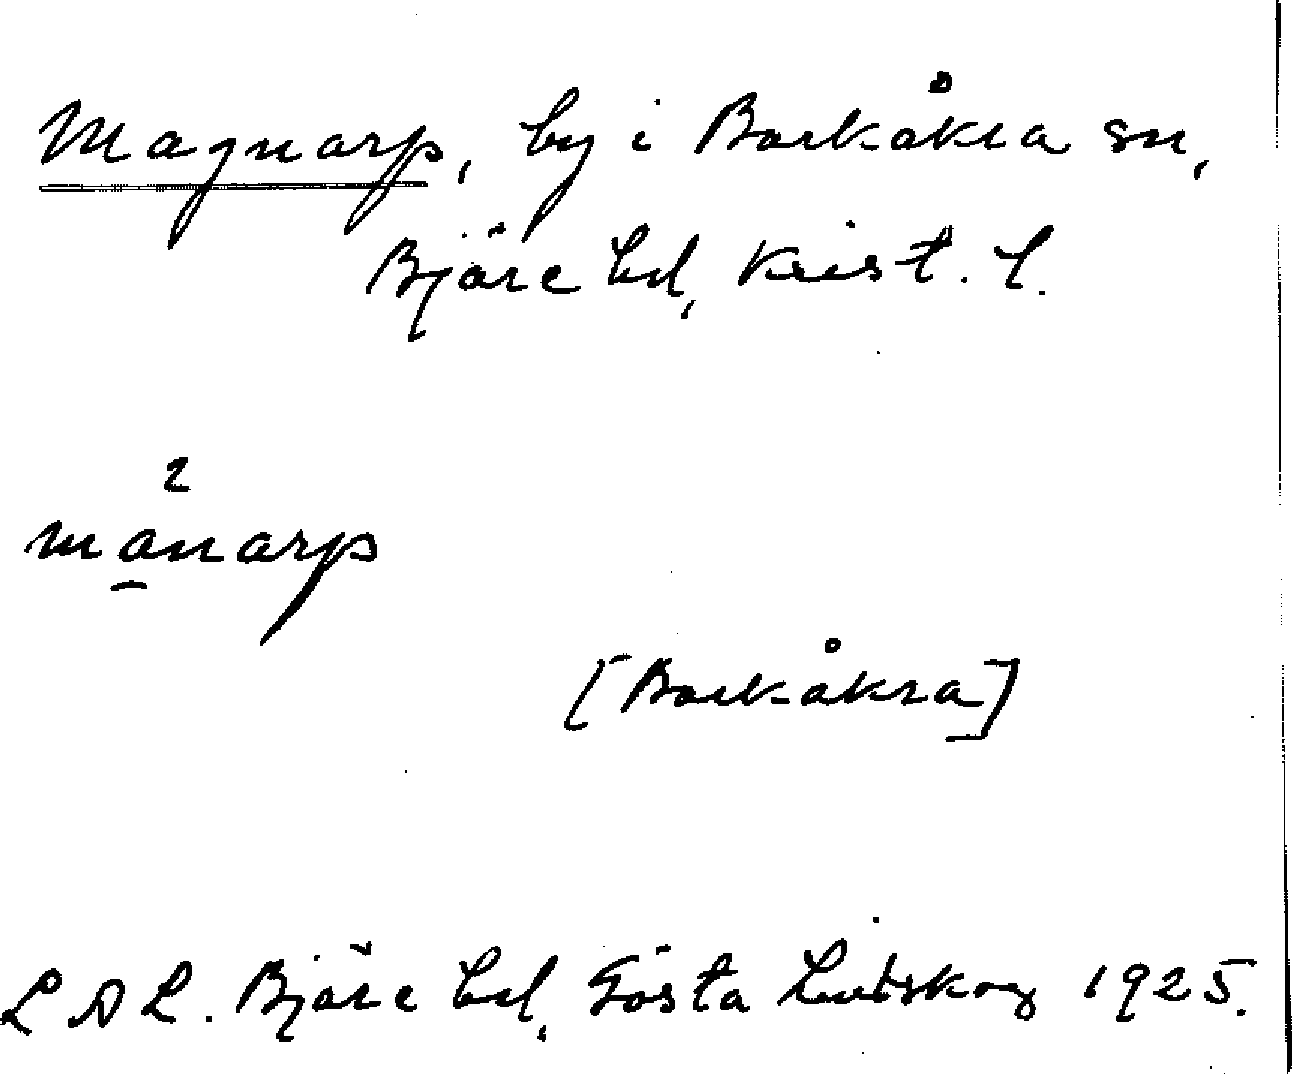 Magnarp, by i Barkåkra sn,
Bjäre hd, Krist. l.
2
månarp
[Barkåkra]
LAL. Bjäre hd, Gösta Lutskog 1925.